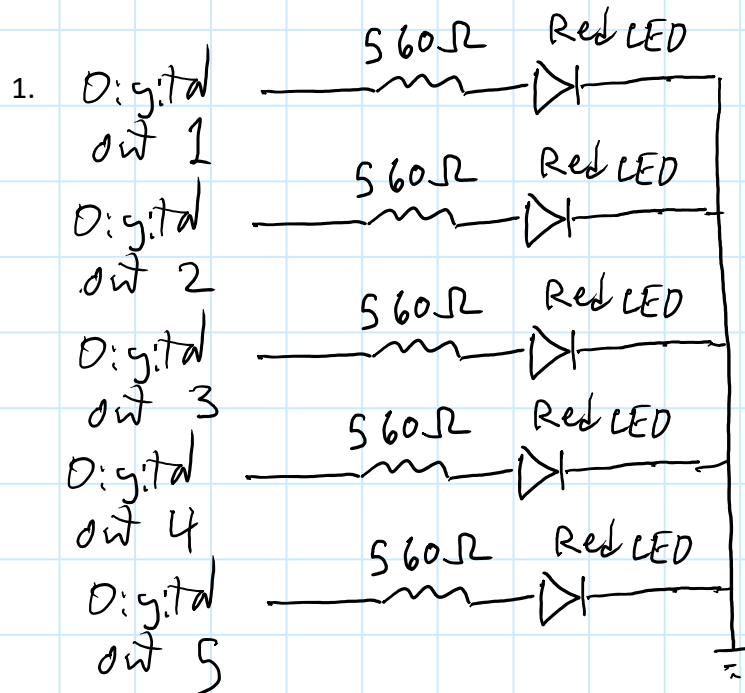 560Ω Red LED
1. Digital
out 1
560Ω Red LED
Digital
out 2
560Ω Red LED
Digital
out 3
560Ω Red LED
Digital
out 4
560Ω Red LED
Digital
out 5